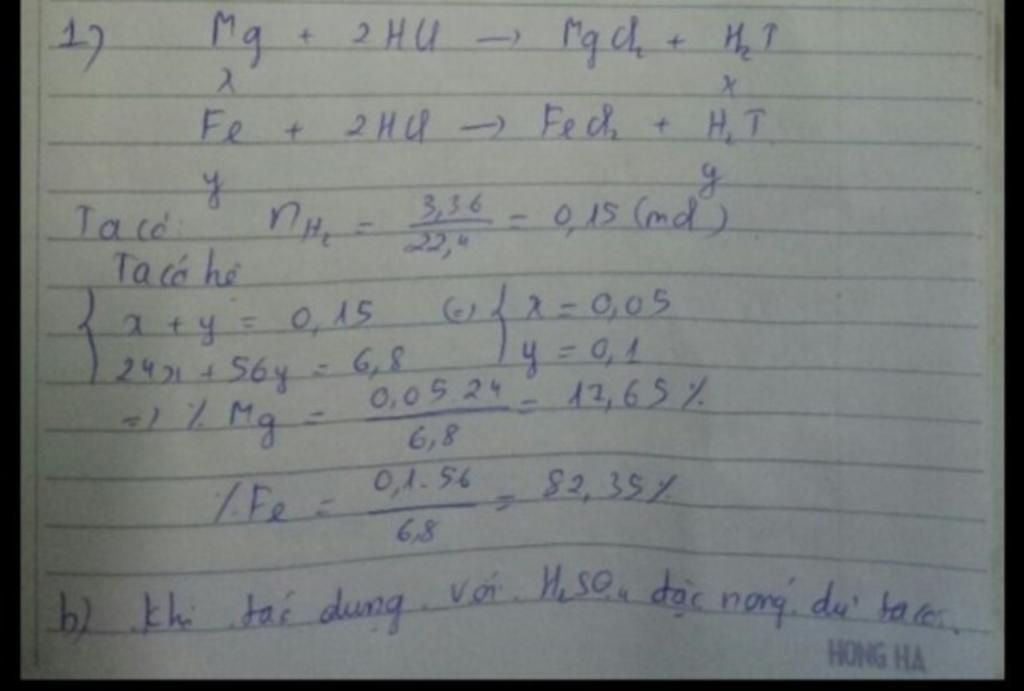 1) Mg + 2HCl → MgCl₂ + H₂↑
x x
Fe + 2HCl → FeCl₂ + H₂↑
y y
Ta có: nH₂ = 3,36/22,4 = 0,15 (mol)
Ta có hệ
{ x + y = 0,15 (=) { x = 0,05
24x + 56y = 6,8 y = 0,1
=) % Mg = 0,05.24/6,8 = 17,65%
% Fe = 0,1.56/6,8 = 82,35%
b) Khi tác dụng với H₂SO₄ đặc nóng dư ta có:
HONG HA